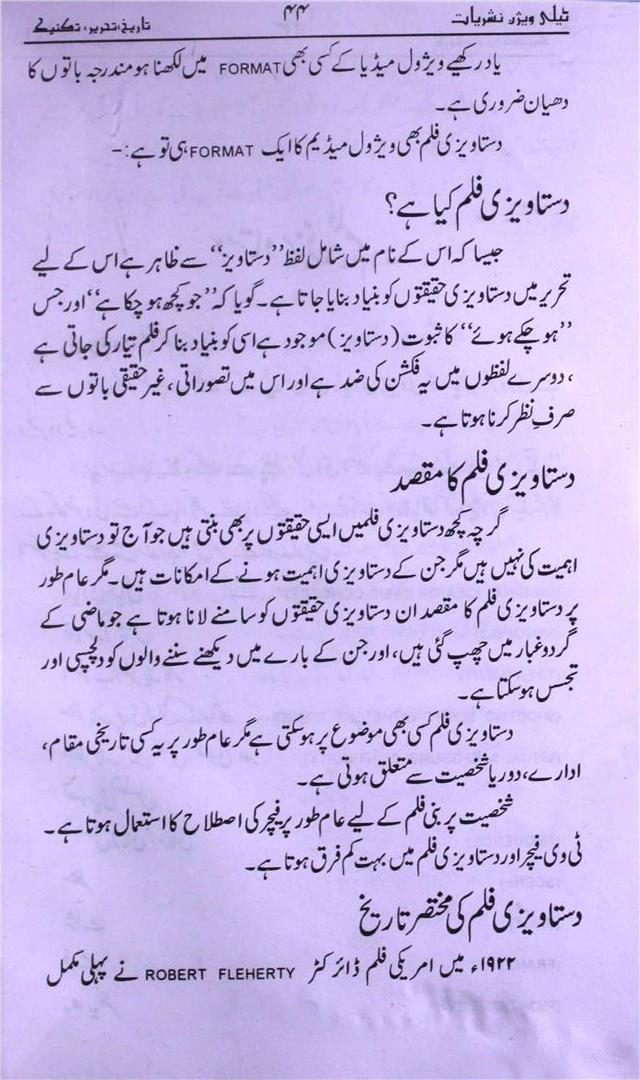 ٹیلی ویژن نشریات
۴۴
تاریخ، تحریر، تکنیک
یاد رکھیے ویژول میڈیا کے کسی بھی FORMAT میں لکھنا ہو مندرجہ باتوں کا
دھیان ضروری ہے۔
دستاویزی فلم بھی ویژول میڈیم کا ایک FORMAT ہی تو ہے:-
دستاویزی فلم کیا ہے؟
جیسا کہ اس کے نام میں شامل لفظ ”دستاویز“ سے ظاہر ہے اس کے لیے
تحریر میں دستاویزی حقیقتوں کو بنیاد بنایا جاتا ہے۔ گویا کہ ”جو کچھ ہو چکا ہے“ اور جس
”ہو چکے ہوئے“ کا ثبوت (دستاویز) موجود ہے اسی کو بنیاد بنا کر فلم تیار کی جاتی ہے
، دوسرے لفظوں میں یہ فکشن کی ضد ہے اور اس میں تصوراتی، غیر حقیقی باتوں سے
صرفِ نظر کرنا ہوتا ہے۔
دستاویزی فلم کا مقصد
گرچہ کچھ دستاویزی فلمیں ایسی حقیقتوں پر بھی بنتی ہیں جو آج تو دستاویزی
اہمیت کی نہیں ہیں مگر جن کے دستاویزی اہمیت ہونے کے امکانات ہیں۔ مگر عام طور
پر دستاویزی فلم کا مقصد ان دستاویزی حقیقتوں کو سامنے لانا ہوتا ہے جو ماضی کے
گرد و غبار میں چھپ گئی ہیں، اور جن کے بارے میں دیکھنے سننے والوں کو دلچسپی اور
تجسس ہو سکتا ہے۔
دستاویزی فلم کسی بھی موضوع پر ہو سکتی ہے مگر عام طور پر یہ کسی تاریخی مقام،
ادارے، دور یا شخصیت سے متعلق ہوتی ہے۔
شخصیت پر بنی فلم کے لیے عام طور پر فیچر کی اصطلاح کا استعمال ہوتا ہے۔
ٹی وی فیچر اور دستاویزی فلم میں بہت کم فرق ہوتا ہے۔
دستاویزی فلم کی مختصر تاریخ
۱۹۲۲ء میں امریکی فلم ڈائرکٹر ROBERT FLEHERTY نے پہلی مکمل